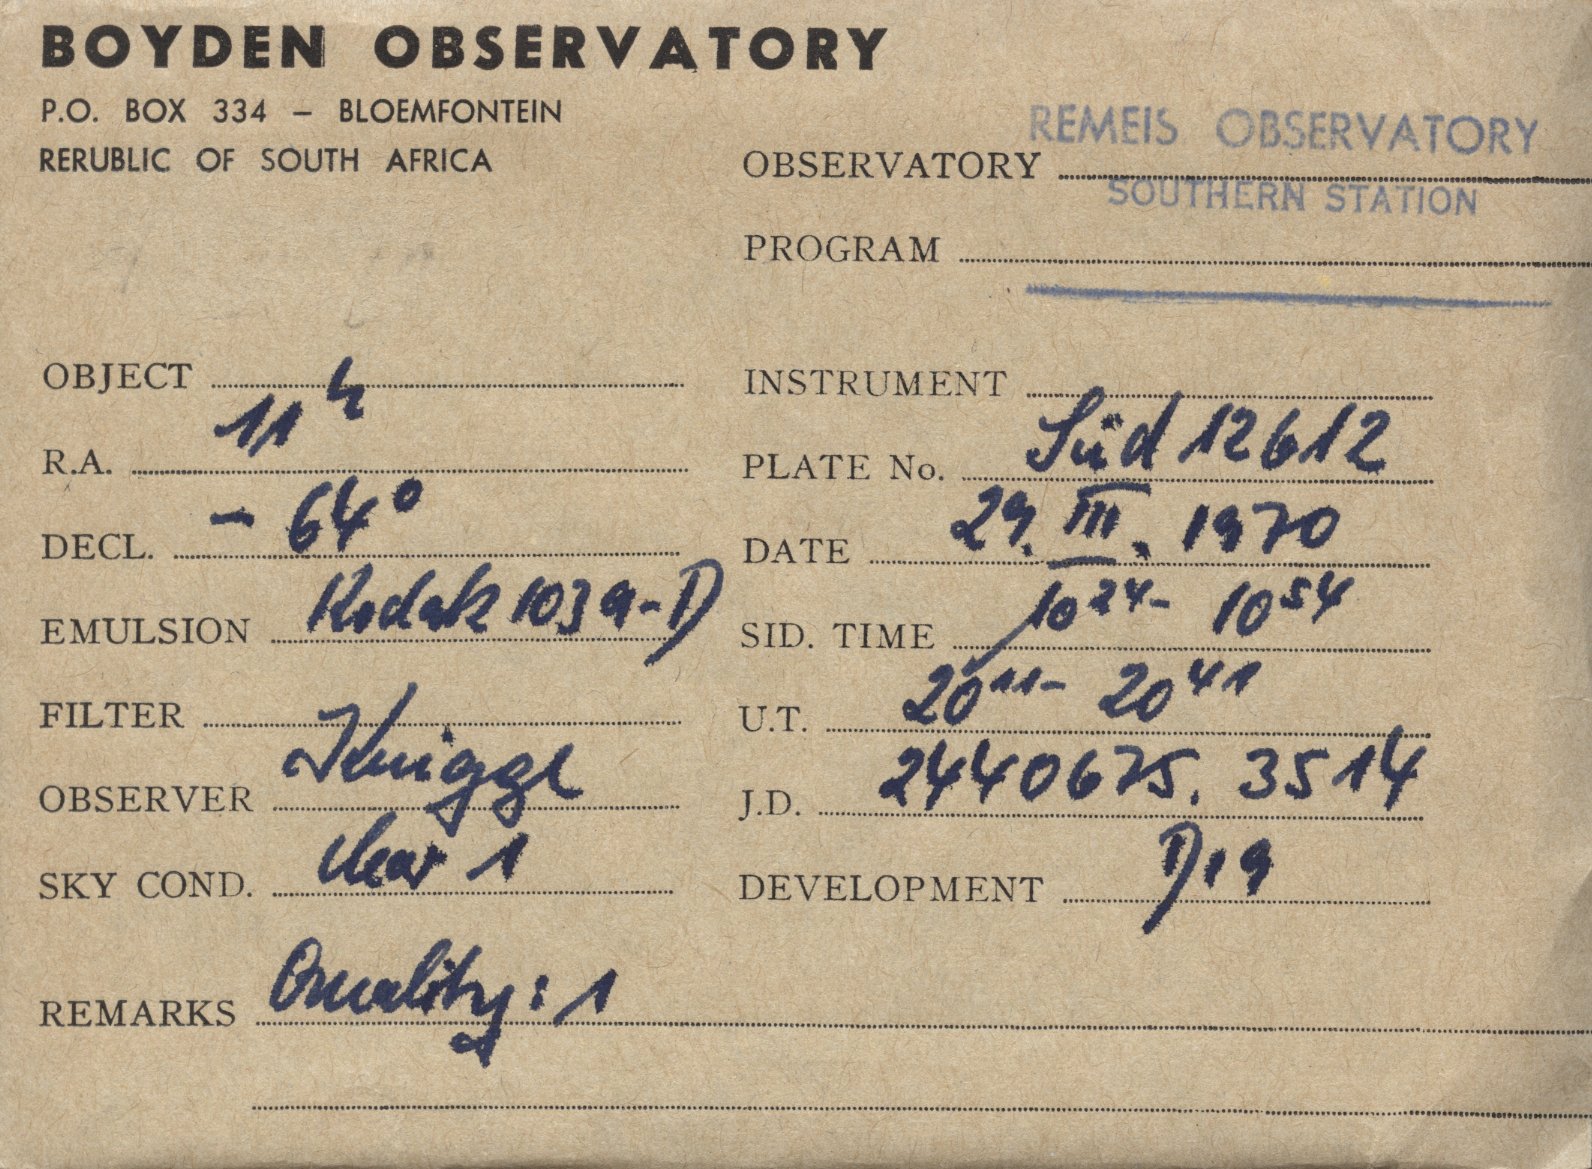 BOYDEN OBSERVATORY
P.O. BOX 334 – BLOEMFONTEIN
RERUBLIC OF SOUTH AFRICA
OBSERVATORY REMEIS OBSERVATORY
SOUTHERN STATION
PROGRAM
OBJECT
R.A. 11h
DECL. – 64°
EMULSION Kodak 103a-D
FILTER
OBSERVER Knigge
SKY COND. clear 1
INSTRUMENT
PLATE No. Süd 12612
DATE 29. III. 1970
SID. TIME 10 24 – 10 54
U.T. 20 11 – 20 41
J.D. 2440675.3514
DEVELOPMENT D19
REMARKS Quality: 1